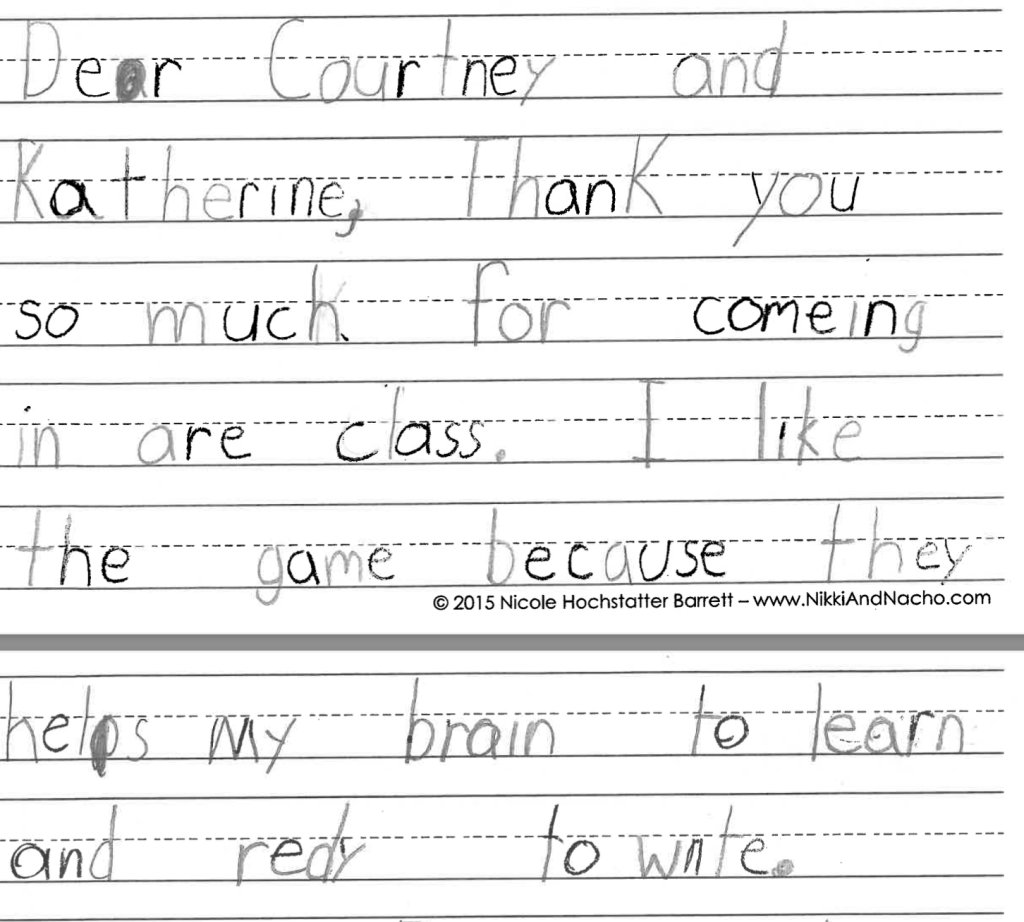 Dear Courtney and
Katherine, Thank you
so much for comeing
in are class. I like
the game because they
© 2015 Nicole Hochstatter Barrett – www.NikkiAndNacho.com
helps My brain to learn
and redy to write.